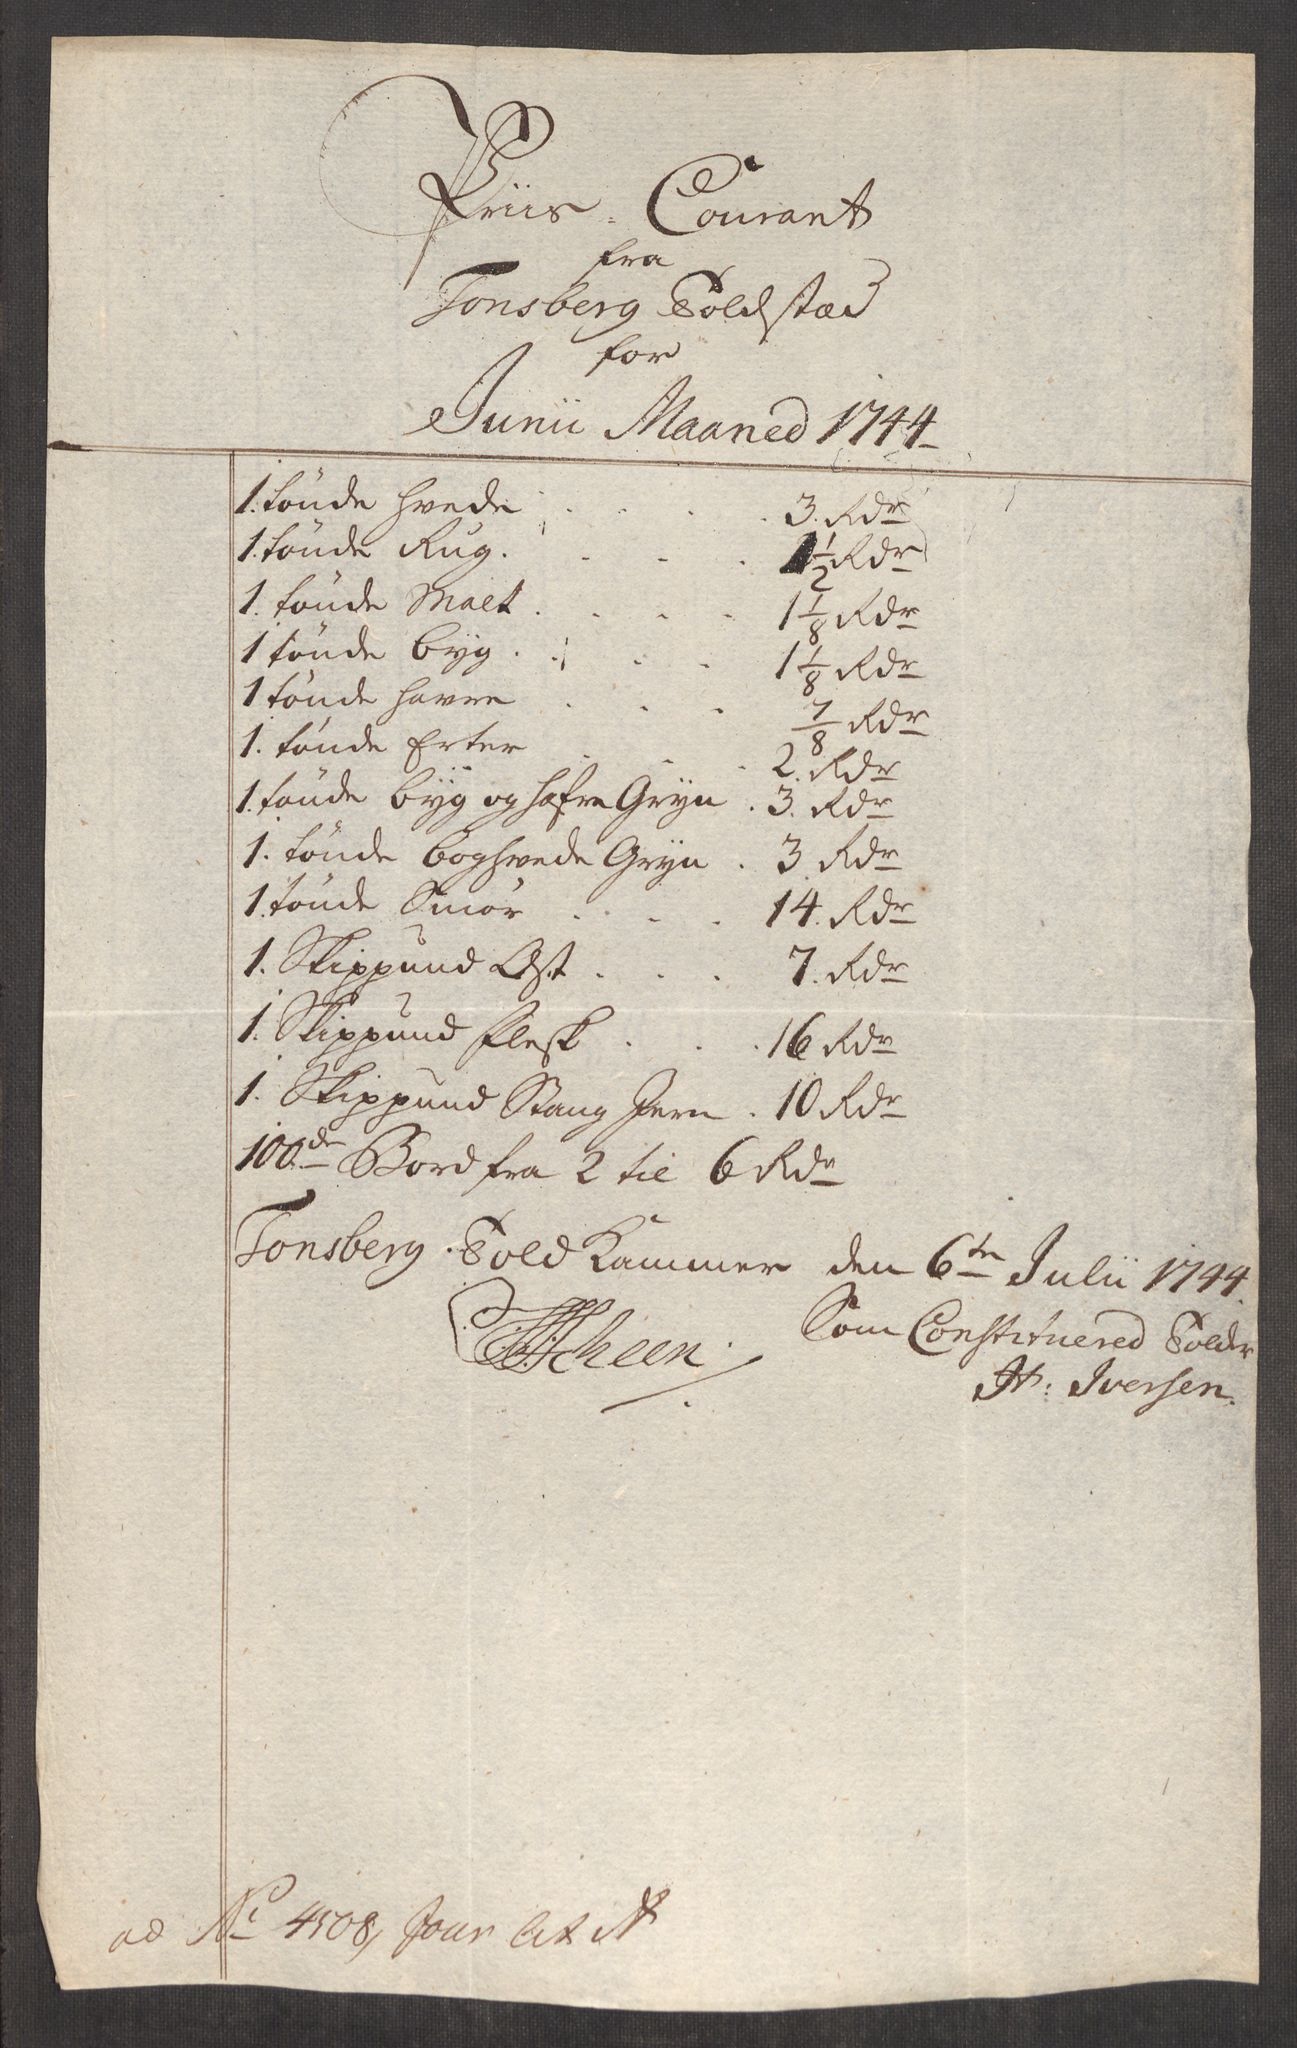 Priis-Courant
fra
Tonsberg Toldstæd
for
Junii Maaned 1744
1. tönde hvede . . . . 3. Rdr
1. tönde Rug . . . . 1 1/2 Rdr
1. tönde Malt . . . . 1 1/8 Rdr
1 tönde byg . . . . 1 1/8 Rdr
1 tönde havre . . . 7/8 Rdr
1. tönde Erter . . . 2. Rdr
1. tönde byg og hafre Gryn . 3. Rdr
1. tönde boghvede Gryn . 3. Rdr
1. tönde Smör . . . 14. Rdr
1. Skippund Ost . . . 7. Rdr
1. Skippund flesk . . . 16 Rdr
1. Skippund Stang Jern . 10 Rdr
100de Bord fra 2 til 6 Rdr
Tonsberg Told Kammer den 6te Julii 1744.
Som Constituered Tolder
Scheen.
Iversen.
ad No 4508, Jour Lit A